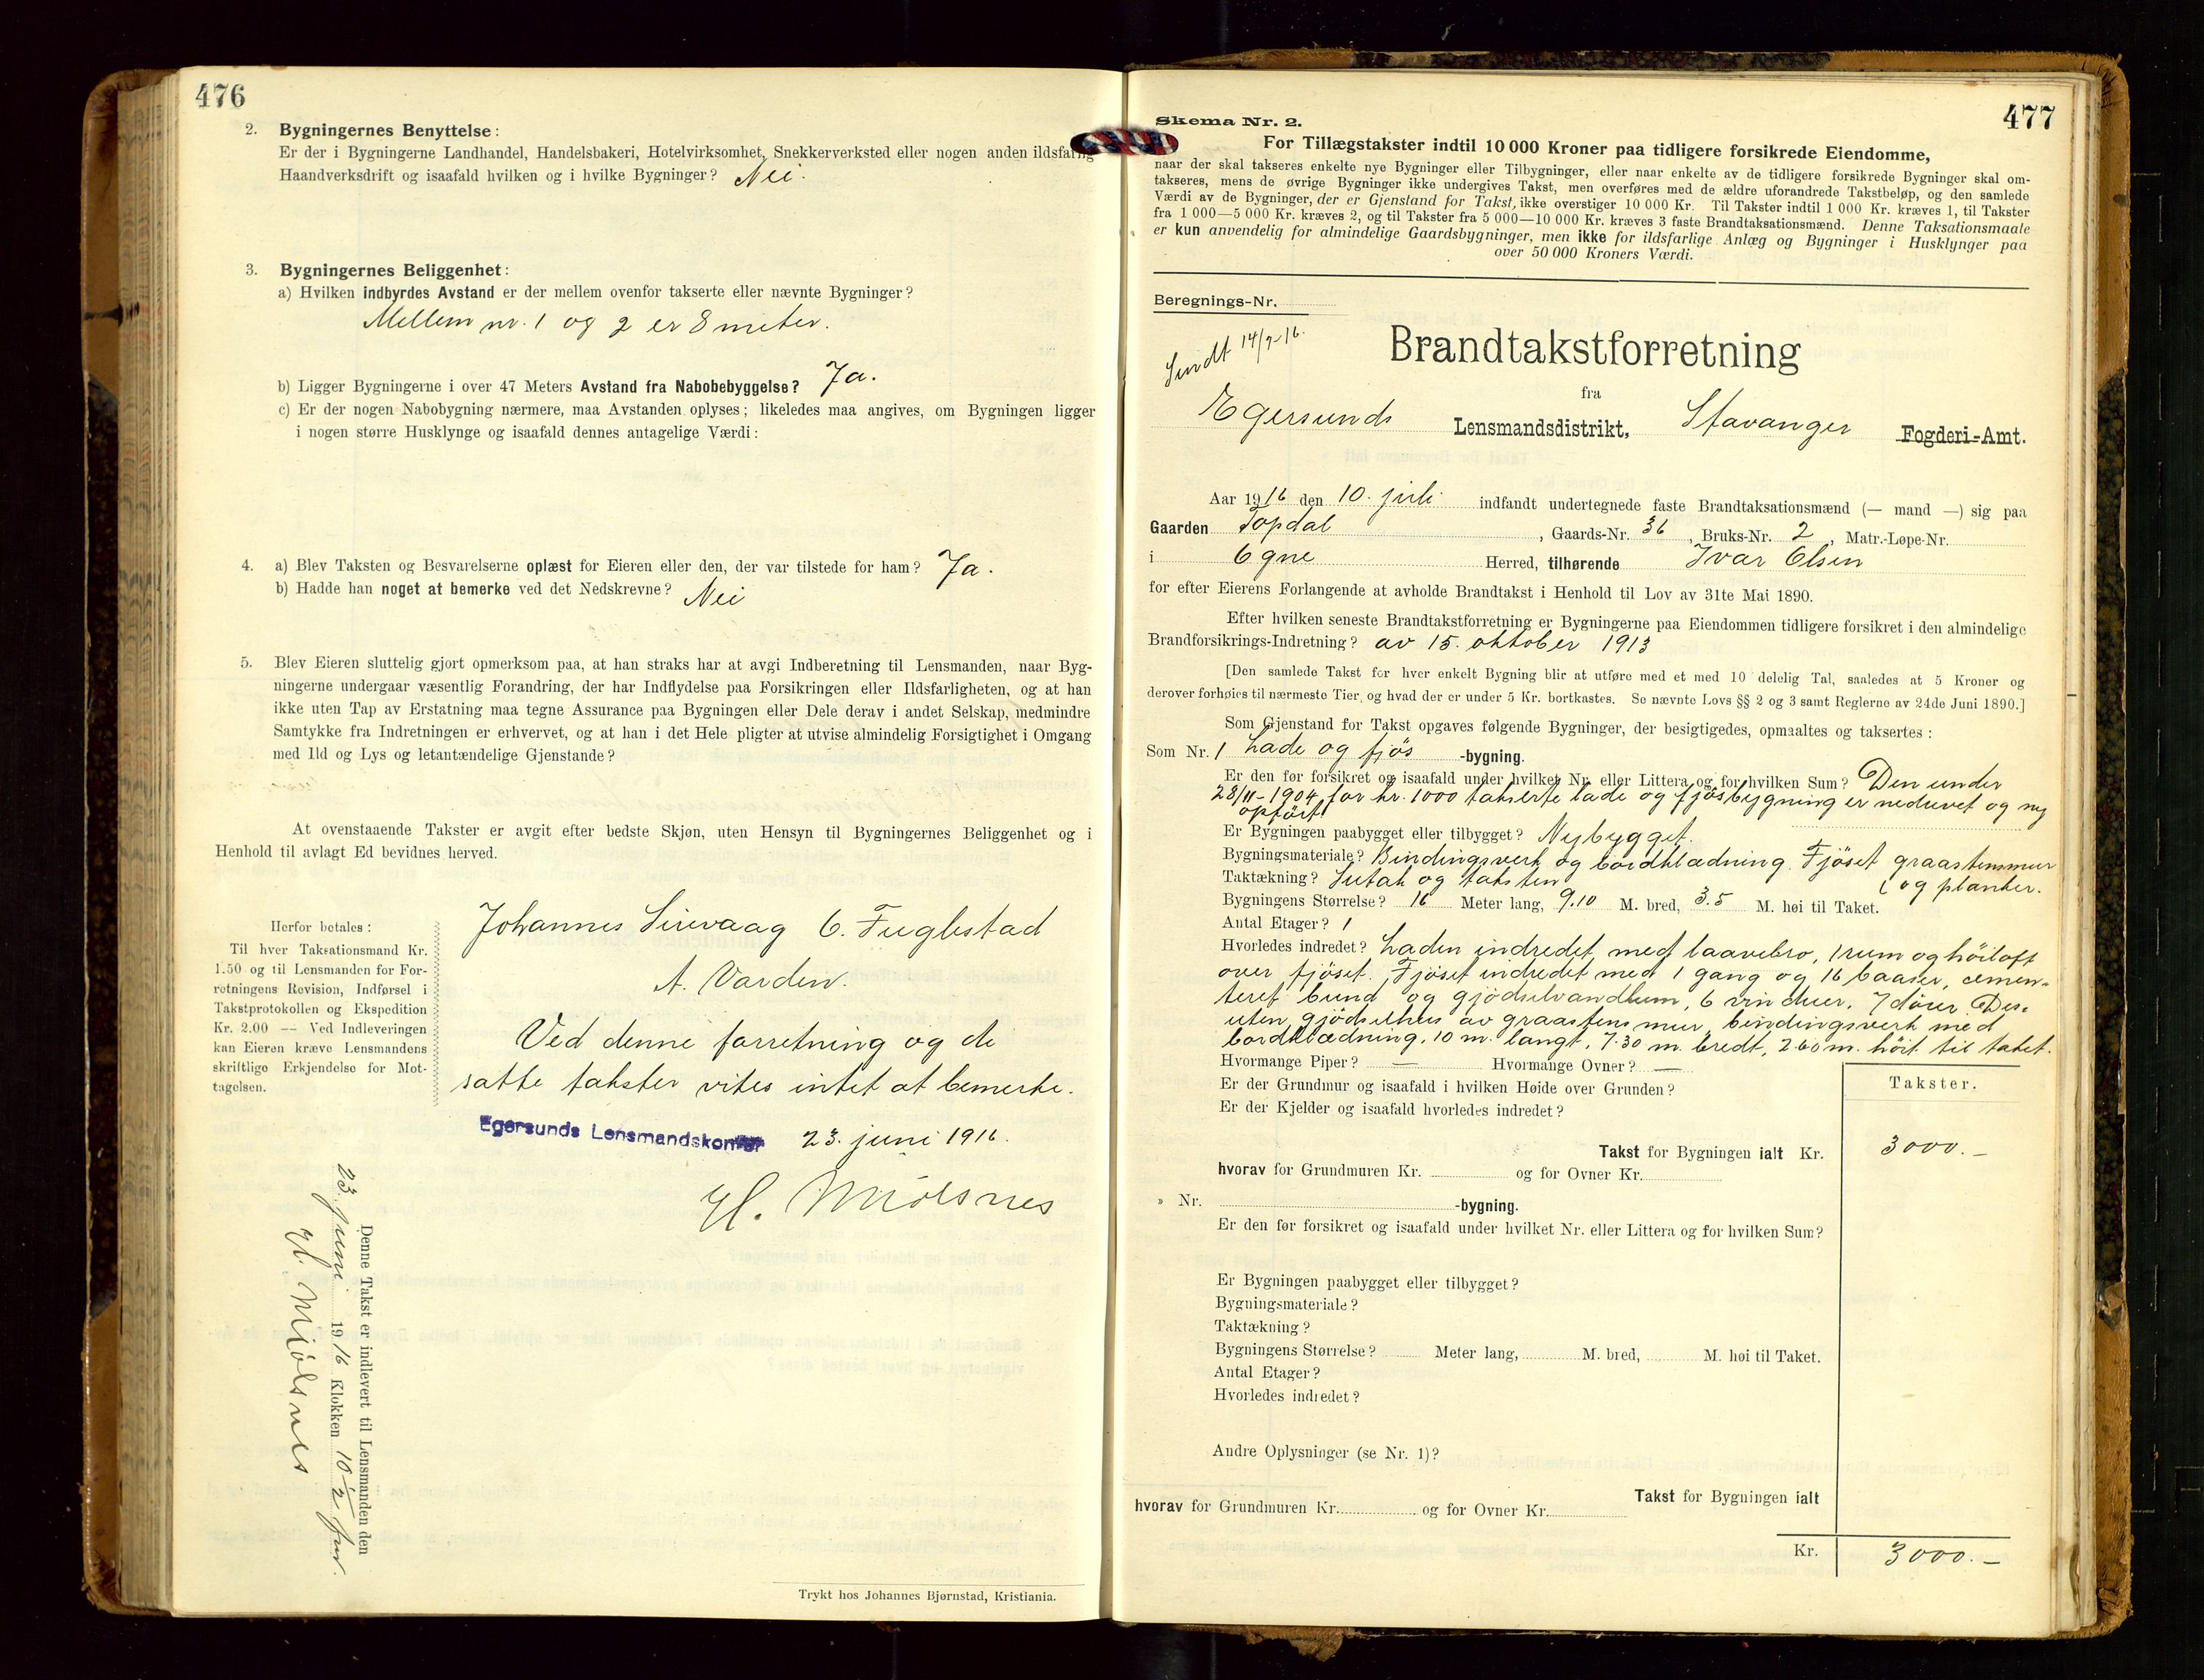 476
2. Bygningernes Benyttelse:
Er der i Bygningerne Landhandel, Handelsbakeri, Hotelvirksomhet, Snekkerverksted eller nogen anden ildsfarlig
Haandverksdrift og isaafald hvilken og i hvilke Bygninger? Nei.
3. Bygningernes Beliggenhet:
a) Hvilken indbyrdes Avstand er der mellem ovenfor takserte eller nævnte Bygninger?
Mellem nr. 1 og 2 er 8 meter.
b) Ligger Bygningerne i over 47 Meters Avstand fra Nabobebyggelse? Ja.
c) Er der nogen Nabobygning nærmere, maa Avstanden oplyses; likeledes maa angives, om Bygningen ligger
i nogen større Husklynge og isaafald dennes antagelige Værdi:
4. a) Blev Taksten og Besvarelserne oplæst for Eieren eller den, der var tilstede for ham? Ja.
b) Hadde han noget at bemerke ved det Nedskrevne? Nei
5. Blev Eieren sluttelig gjort opmerksom paa, at han straks har at avgi Indberetning til Lensmanden, naar Byg-
ningerne undergaar væsentlig Forandring, der har Indflydelse paa Forsikringen eller Ildsfarligheten, og at han
ikke uten Tap av Erstatning maa tegne Assurance paa Bygningen eller Dele derav i andet Selskap, medmindre
Samtykke fra Indretningen er erhvervet, og at han i det Hele pligter at utvise almindelig Forsigtighet i Omgang
med Ild og Lys og letantændelige Gjenstande?
At ovenstaaende Takster er avgit efter bedste Skjøn, uten Hensyn til Bygningernes Beliggenhet og i
Henhold til avlagt Ed bevidnes herved.
Johannes Sirevaag C. Fuglestad
A. Varden.
Herfor betales:
Til hver Taksationsmand Kr.
1.50 og til Lensmanden for For-
retningens Revision, Indførsel i
Takstprotokollen og Ekspedition
Kr. 2.00 — Ved Indleveringen
kan Eieren kræve Lensmandens
skriftlige Erkjendelse for Mot-
tagelsen.
Ved denne forretning og de
satte takster vites intet at bemerke.
Egersunds Lensmandskontor 23. juni 1916.
H. Mjølsnes
Denne Takst er indlevert til Lensmanden den
23. juni 1916 Klokken 10 1/2 fm.
H. Mjølsnes
Trykt hos Johannes Bjørnstad, Kristiania.
477
Skema Nr. 2.
For Tillægstakster indtil 10 000 Kroner paa tidligere forsikrede Eiendomme,
naar der skal takseres enkelte nye Bygninger eller Tilbygninger, eller naar enkelte av de tidligere forsikrede Bygninger skal om-
takseres, mens de øvrige Bygninger ikke undergives Takst, men overføres med de ældre uforandrede Takstbeløp, og den samlede
Værdi av de Bygninger, der er Gjenstand for Takst, ikke overstiger 10 000 Kr. Til Takster indtil 1 000 Kr. kræves 1, til Takster
fra 1 000—5 000 Kr. kræves 2, og til Takster fra 5 000—10 000 Kr. kræves 3 faste Brandtaksationsmænd. Denne Taksationsmaale
er kun anvendelig for almindelige Gaardsbygninger, men ikke for ildsfarlige Anlæg og Bygninger i Husklynger paa
over 50 000 Kroners Værdi.
Beregnings-Nr.
Sendt 14/7-16.
Brandtakstforretning
fra
Egersunds Lensmandsdistrikt, Stavanger Fogderi-Amt.
Aar 1916 den 10. juli indfandt undertegnede faste Brandtaksationsmænd (— mand —) sig paa
Gaarden Topdal, Gaards-Nr. 36, Bruks-Nr. 2, Matr.-Løpe-Nr.
i Ogne Herred, tilhørende Ivar Olsen
for efter Eierens Forlangende at avholde Brandtakst i Henhold til Lov av 31te Mai 1890.
Efter hvilken seneste Brandtakstforretning er Bygningerne paa Eiendommen tidligere forsikret i den almindelige
Brandforsikrings-Indretning? av 15. oktober 1913
[Den samlede Takst for hver enkelt Bygning blir at utføre med et med 10 delelig Tal, saaledes at 5 Kroner og
derover forhøies til nærmeste Tier, og hvad der er under 5 Kr. bortkastes. Se nævnte Lovs §§ 2 og 3 samt Reglerne av 24de Juni 1890.]
Som Gjenstand for Takst opgaves følgende Bygninger, der besigtigedes, opmaaltes og taksertes:
Som Nr. 1 Lade og fjös -bygning.
Er den før forsikret og isaafald under hvilket Nr. eller Littera og for hvilken Sum? Den under
28/11-1904 for kr. 1000 takserte lade og fjösbygning er nedrevet og ny
opfört
Er Bygningen paabygget eller tilbygget? Nybygget.
Bygningsmateriale? Bindingsverk og bordklædning. Fjöset graastensmur
Taktækning? Sutak og taksten og planker.
Bygningens Størrelse? 16 Meter lang, 9.10 M. bred, 3.5 M. høi til Taket.
Antal Etager? 1
Hvorledes indredet? Laden indredet med laavebro, 1 rum og höiloft
over fjöset. Fjöset indredet med 1 gang og 16 baaser, cemen-
teret bund og gjödselvandkum, 6 vinduer, 7 dörer. Des-
uten gjödselhus av graastensmur, bindingsverk med
bordklædning, 10 m. langt, 7.30 m. bredt, 2.60 m. höit til taket.
Hvormange Piper? — Hvormange Ovner? —
Er der Grundmur og isaafald i hvilken Høide over Grunden?
Er der Kjelder og isaafald hvorledes indredet?
Takster.
Takst for Bygningen ialt Kr. 3000.—
hvorav for Grundmuren Kr. og for Ovner Kr.
» Nr. -bygning.
Er den før forsikret og isaafald under hvilket Nr. eller Littera og for hvilken Sum?
Er Bygningen paabygget eller tilbygget?
Bygningsmateriale?
Taktækning?
Bygningens Størrelse? Meter lang, M. bred, M. høi til Taket.
Antal Etager?
Hvorledes indredet?
Andre Oplysninger (se Nr. 1)?
Takst for Bygningen ialt
hvorav for Grundmuren Kr. og for Ovner Kr.
Kr. 3000.—